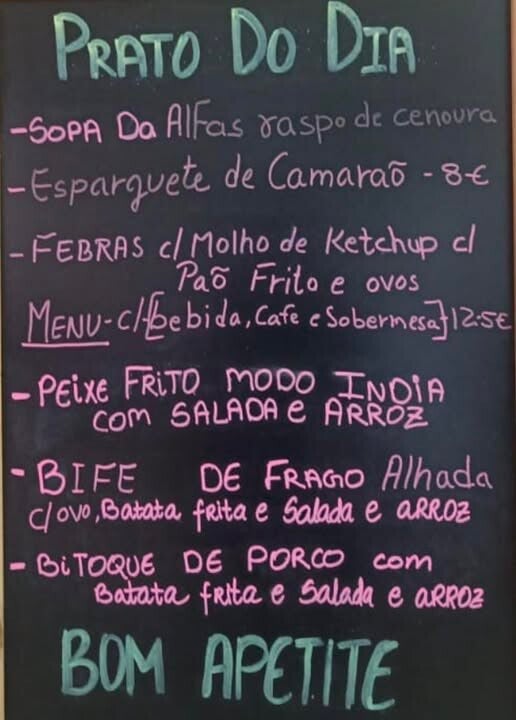 PRATO DO DIA
-SOPA DA Alfas raspo de cenoura
- Esparguete de Camaraõ - 8€
- FEBRAS c/ Molho de Ketchup c/
Paõ Frito e ovos
MENU- c/[bebida, Cafe e Sobermesa} 12.5€
- PEiXE FRITO MODO INDIA
COM SALADA e ARROZ
- BIFE DE FRAGO Alhada
c/ovo, Batata frita e Salada e ARROZ
- BiTOQUE DE PORCO com
Batata frita e Salada e ARROZ
BOM APETITE